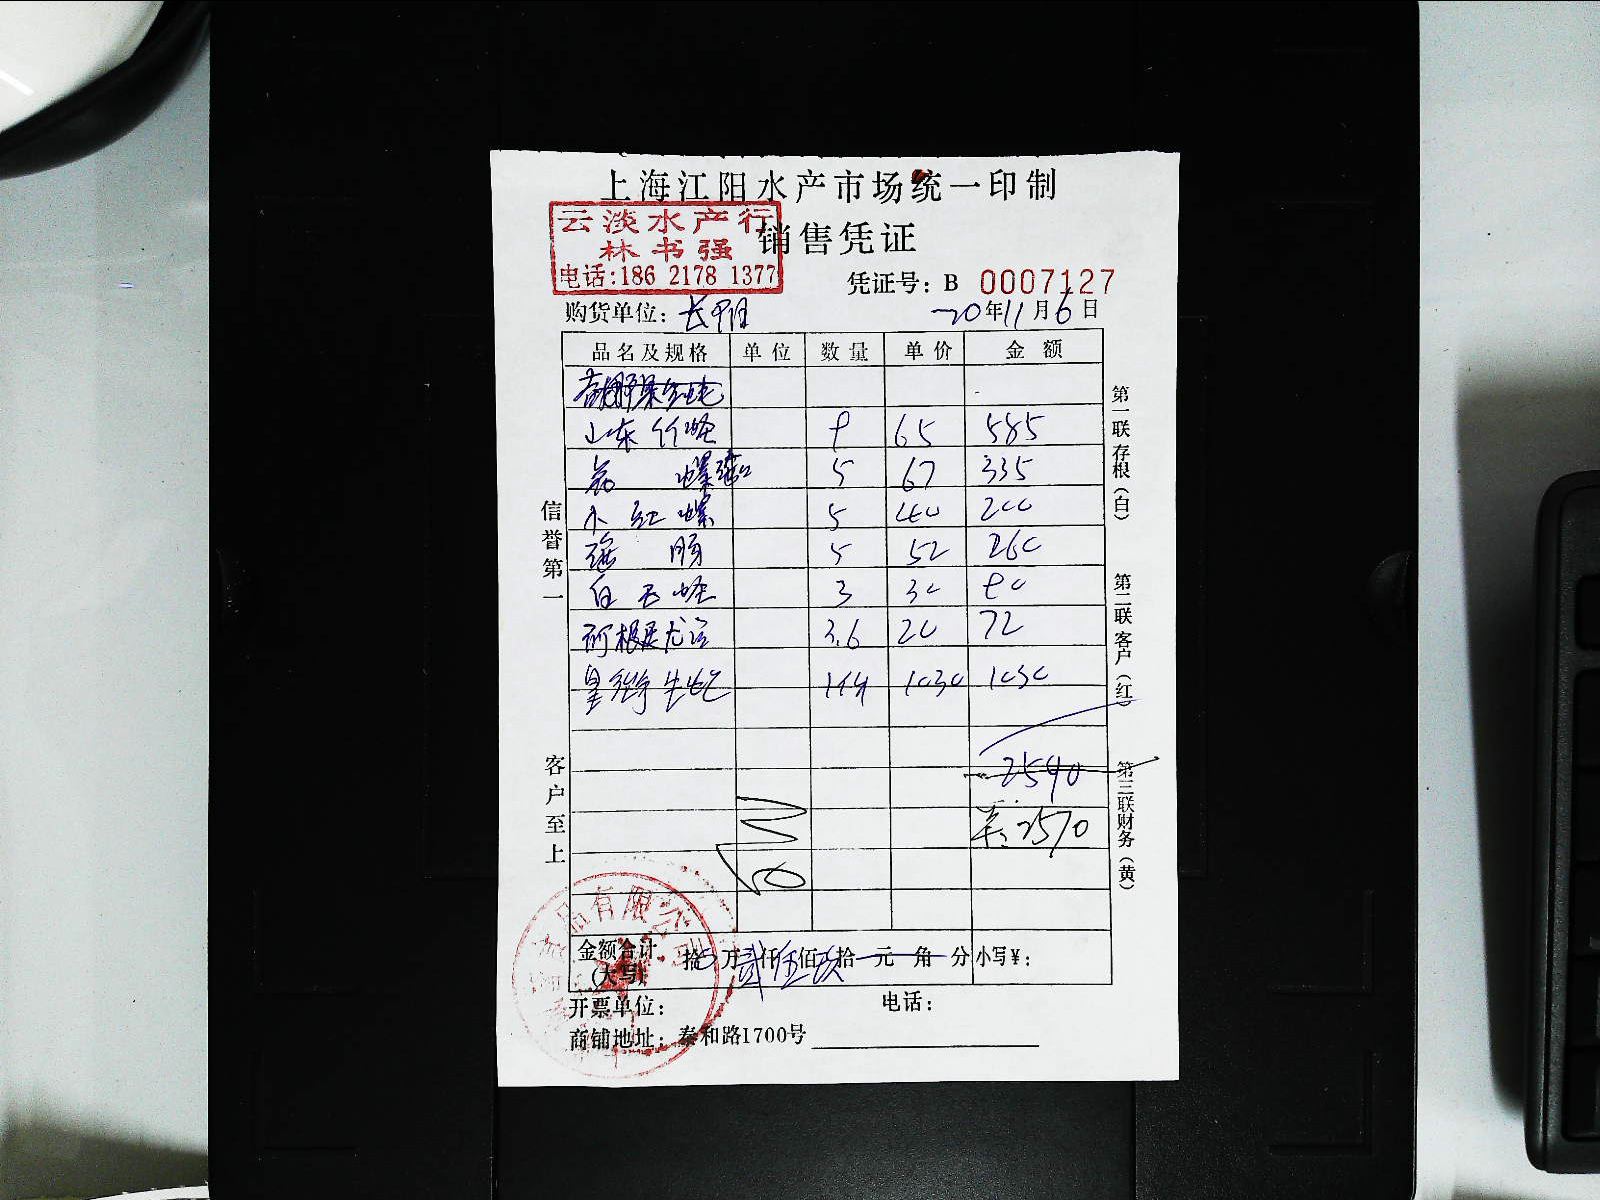 上海江阳水产市场统一印制
云淡水产行
林书强
电话:186 2178 1377
销售凭证
凭证号: B 0007127
购货单位: 长阳
20年11月6日
品名及规格 单位 数量 单价 金额
山东竹蛏 9 65 585
螺 5 67 335
小红螺 5 40 200
5 52 260
白玉蛏 3 30 90
阿根廷 3.6 20 72
生蚝 1件 1030 1030
2540
2570
信誉第一
客户至上
第一联存根(白)
第二联客户(红)
第三联财务(黄)
品有限公司
金额合计(大写): 拾 万贰仟伍佰玖拾 元 角 分 小写¥:
开票单位: 电话:
商铺地址: 泰和路1700号